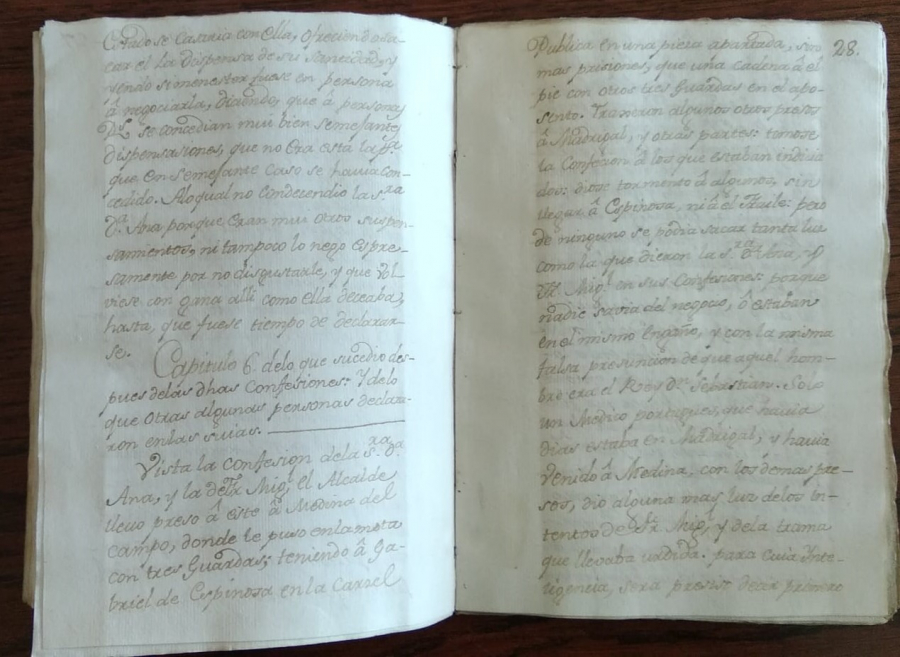 se casaria con ella, ofreciendo sa-
car el la dispensa de su Santidad, y
yendo si menester fuese en persona
â negociarla, diciendo, que â personas
se concedian mui bien semejantes
dispensasiones, que no era esta la pra.
que en semejante caso se havia con-
cedido. Aloqual no condecendio la s.ra
d.a Ana, porque eran mui otros sus pen-
samientos, ni tampoco lo nego espre-
samente por no disgustarle, y que vol
viese con gana alli como ella deceaba,
hasta, que fuese tiempo de declarar-
se.
Capitulo 6. delo que sucedio des-
pues delas dhas Confesiones: Y delo
que otras algunas personas declara-
ron enlas suias.
Vista la confesion dela s.ra d.a
Ana, y la de fr. Mig.l el Alcalde
llevo preso â este â Medina del
campo, donde le puso enla mota
con tres Guardas; teniendo â Ga-
briel de Espinosa en la Carzel
28.
Publica en una pieza apartada, sin
mas prisiones, que una cadena â el
pie con otros tres Guardas en el apo-
sento. Traxeron algunos otros presos
â Madrigal, y otras partes: tomose
la Confesion â los que estaban indicia
dos: diose tormento â algunos, sin
llegar â Espinosa, ni â el Fraile: pero
de ninguno se podia sacar tanta luz
como la que dieron la s.ra D.a Ana, y
Fr. Mig.l en sus Confesiones: porque
nadie savia del negocio, ô estaban
en el mismo engaño, y con la misma
falsa presuncion de que aquel hom-
bre era el Rey Dn. Sebastian. Solo
un Medico portugues, que havia
dias estaba en Madrigal, y havia
venido â Medina, con los demas pre-
sos, dio alguna mas luz delos in-
tentos de Fr. Mig.l y dela trama
que llevaba urdida. para cuia inte-
ligencia, sera preciso decir primero